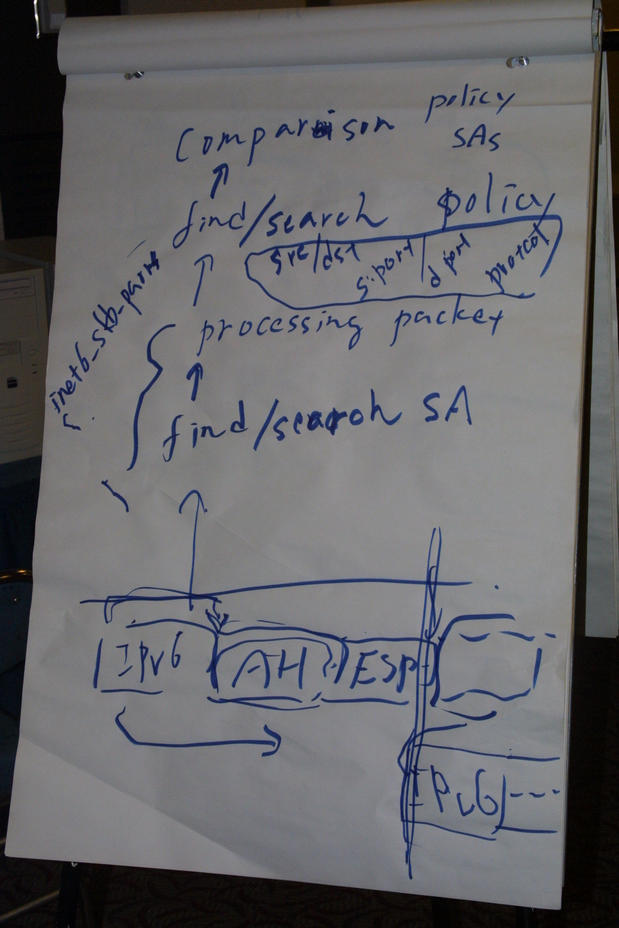 Comparison policy
SAs
find/search policy
src/dst s.port d port protcol
inet6_skb_parm
processing packet
find/search SA
IPv6 AH ESP
IPv6